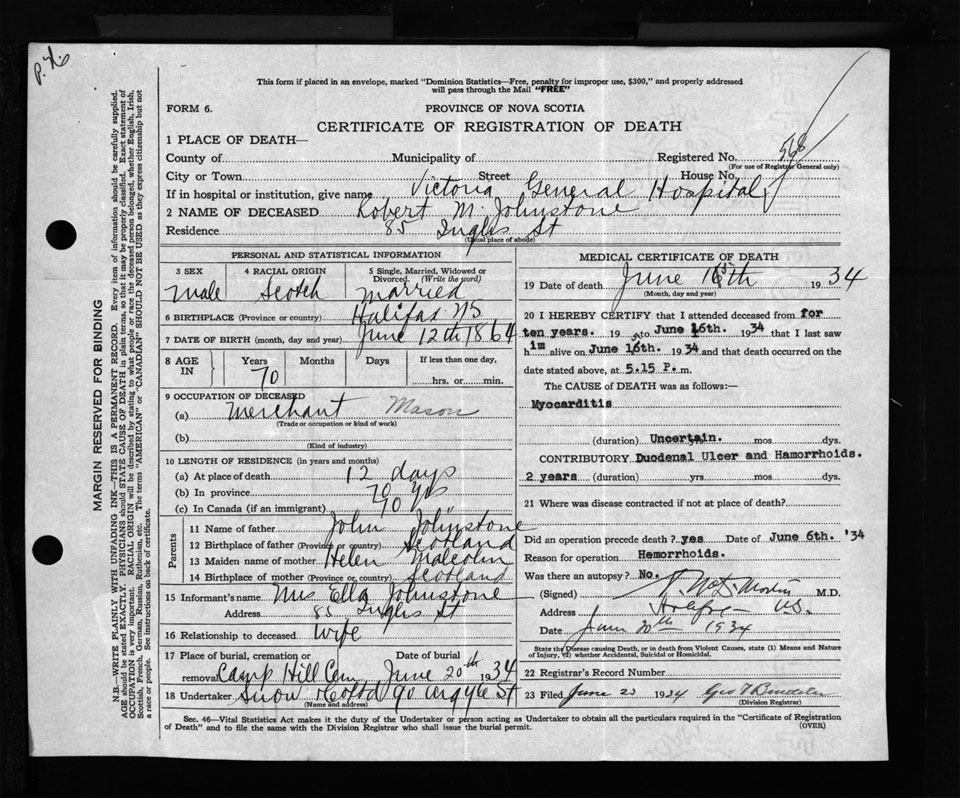 P.X.
This form if placed in an envelope, marked "Dominion Statistics—Free, penalty for improper use, $300," and properly addressed
will pass through the Mail "FREE"
FORM 6.
PROVINCE OF NOVA SCOTIA
CERTIFICATE OF REGISTRATION OF DEATH
1 PLACE OF DEATH—
County of Municipality of Registered No. 568
(For use of Registrar General only)
City or Town Street House No.
If in hospital or institution, give name Victoria General Hospital
2 NAME OF DECEASED Robert M. Johnstone
Residence 85 Inglis St
(Usual place of abode)
PERSONAL AND STATISTICAL INFORMATION
3 SEX 4 RACIAL ORIGIN 5 Single, Married, Widowed or
Divorced. (Write the word)
Male Scotch Married
6 BIRTHPLACE (Province or country) Halifax NS
7 DATE OF BIRTH (month, day and year) June 12th 1864
8 AGE IN Years Months Days If less than one day,
70 hrs. or min.
9 OCCUPATION OF DECEASED
(a) Merchant Mason
(Trade or occupation or kind of work)
(b)
(Kind of industry)
10 LENGTH OF RESIDENCE (in years and months)
(a) At place of death 12 days
(b) In province 70 yrs
(c) In Canada (if an immigrant) 70 "
Parents
11 Name of father John Johnstone
12 Birthplace of father (Province or country) Scotland
13 Maiden name of mother Helen Malcolm
14 Birthplace of mother (Province or country) Scotland
15 Informant's name Mrs Ella Johnstone
Address 85 Inglis St
16 Relationship to deceased Wife
17 Place of burial, cremation or Date of burial
removal Camp Hill Cem June 20th 1934
18 Undertaker Snow & Co Ltd 90 Argyle St
(Name and address)
MEDICAL CERTIFICATE OF DEATH
19 Date of death June 16th 1934
(Month, day and year)
20 I HEREBY CERTIFY that I attended deceased from for
ten years. 19 to June 16th. 1934 that I last saw
him alive on June 16th 1934 and that death occurred on the
date stated above, at 5.15 P. m.
The CAUSE of DEATH was as follows:—
Myocarditis
(duration) Uncertain. mos dys.
CONTRIBUTORY Duodenal Ulcer and Hamorrhoids.
2 years (duration) yrs mos dys.
21 Where was disease contracted if not at place of death?
Did an operation precede death? yes Date of June 6th. '34
Reason for operation Hemorrhoids.
Was there an autopsy? No.
(Signed) M.D.
Address Halifax N.S.
Date June 20th 1934
State the Disease causing Death, or in death from Violent Causes, state (1) Means and Nature
of Injury, (2) whether Accidental, Suicidal or Homicidal.
22 Registrar's Record Number
23 Filed June 23 1934
(Division Registrar)
Sec. 46—Vital Statistics Act makes it the duty of the Undertaker or person acting as Undertaker to obtain all the particulars required in the "Certificate of Registration
of Death" and to file the same with the Division Registrar who shall issue the burial permit. (OVER)
MARGIN RESERVED FOR BINDING
N.B.—WRITE PLAINLY WITH UNFADING INK—THIS IS A PERMANENT RECORD. Every item of information should be carefully supplied.
AGE should be stated EXACTLY. PHYSICIANS should STATE CAUSE OF DEATH in plain terms, so that it may be properly classified. Exact statement of
OCCUPATION is very important. RACIAL ORIGIN will be described by stating to what people or race the deceased person belonged, whether English, Irish,
Scottish, French, German, Russian, Ruthenian, etc. The terms "AMERICAN" or "CANADIAN" SHOULD NOT BE USED as they express citizenship but not
a race or people. See instructions on back of certificate.